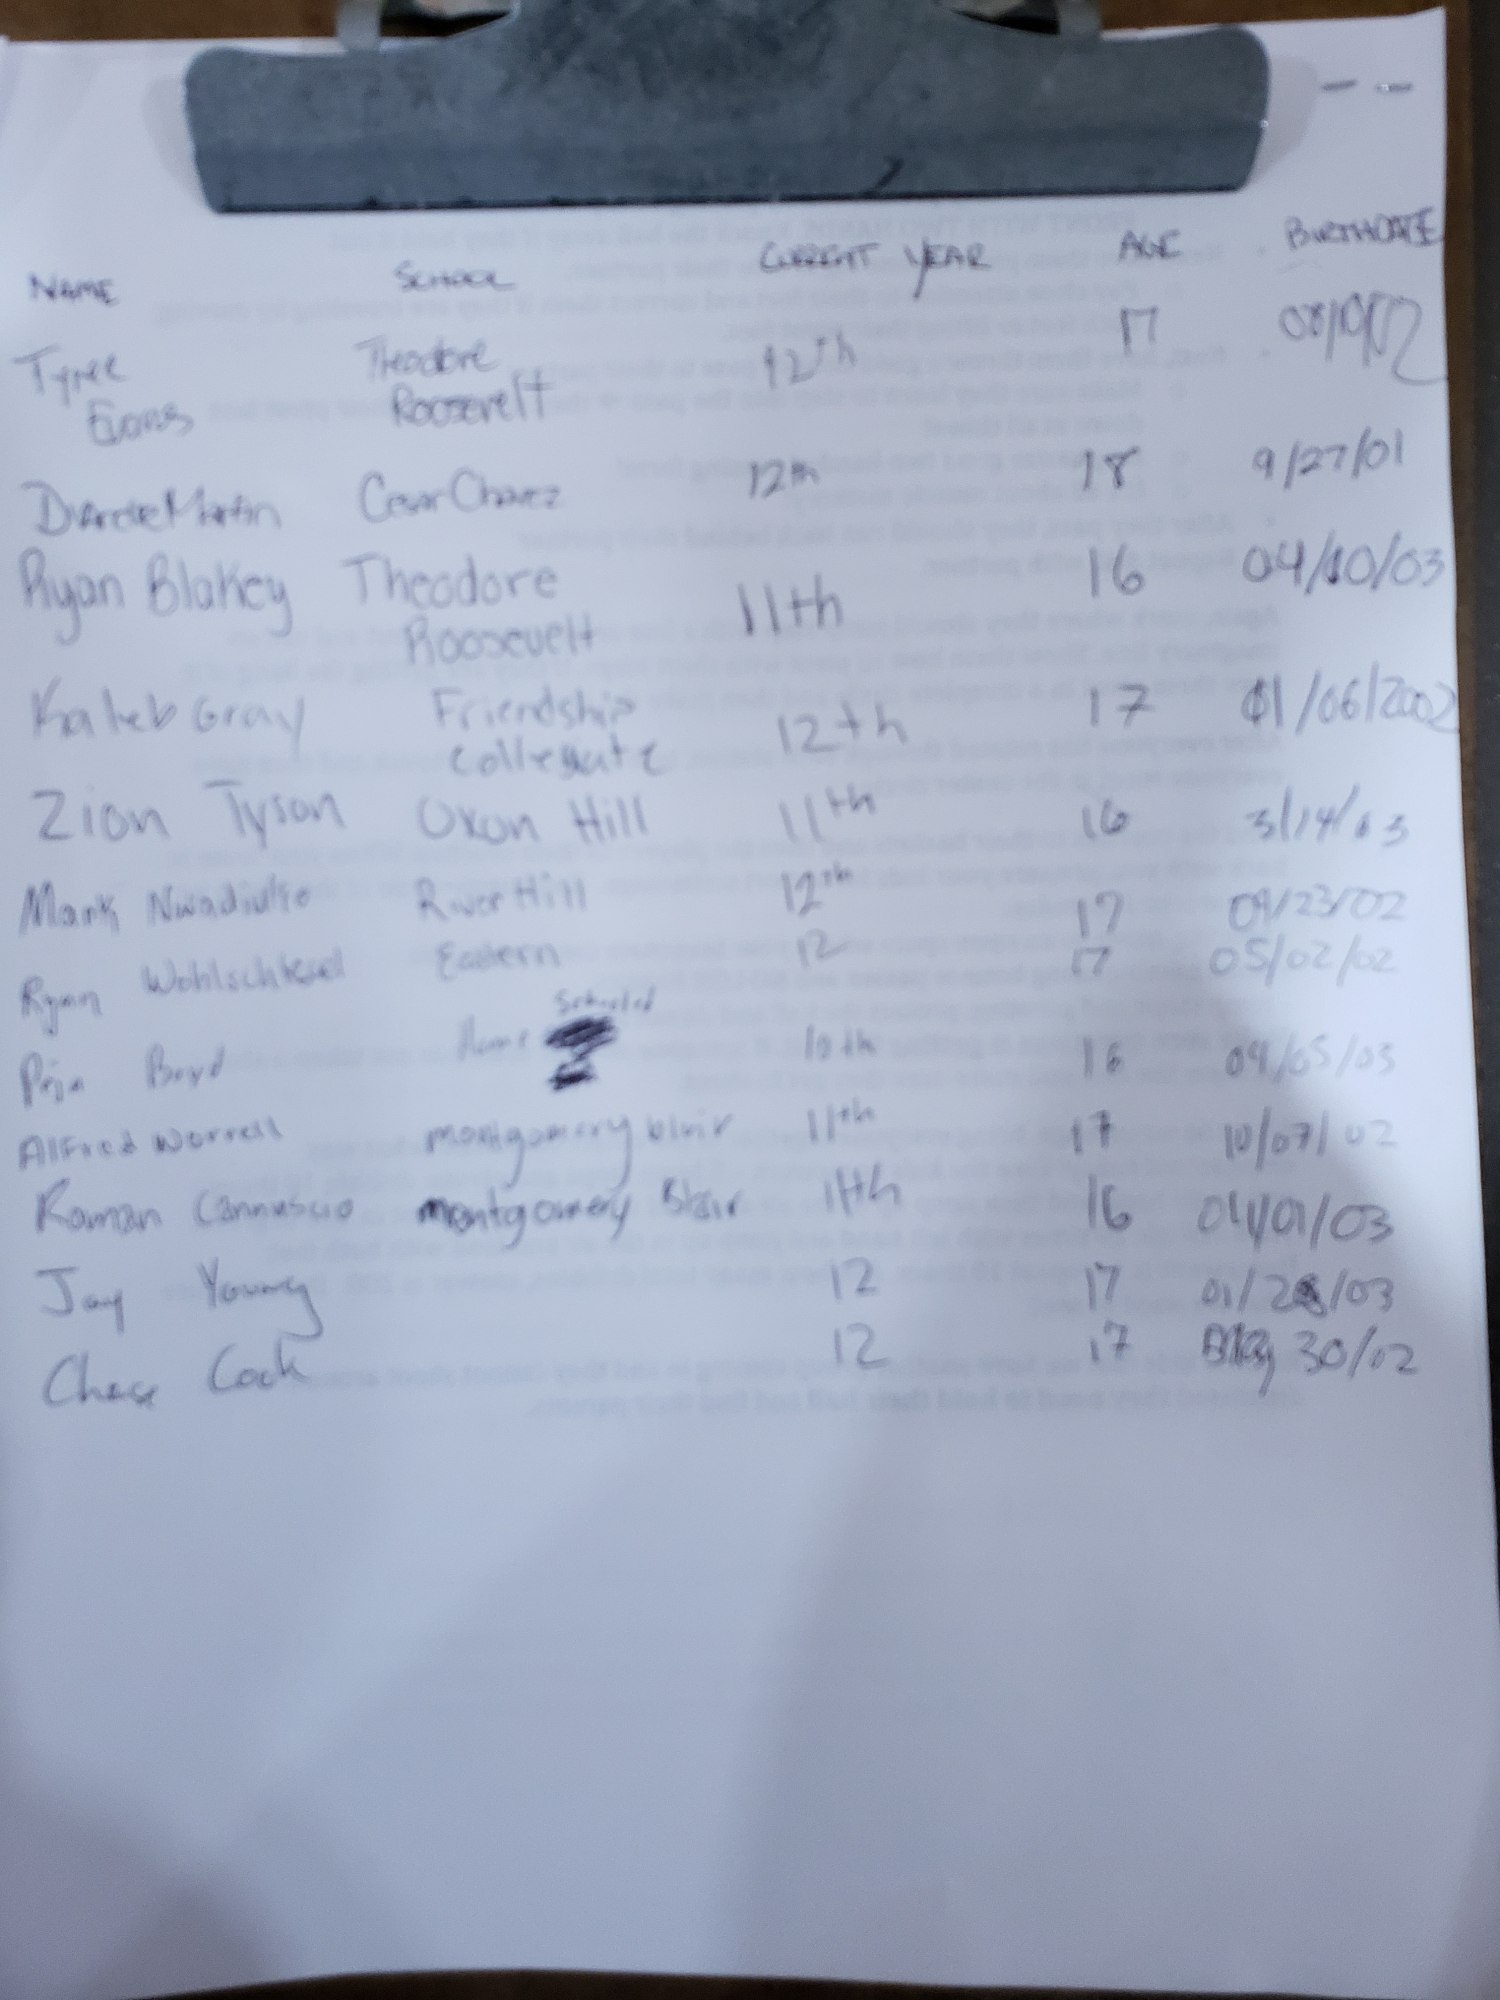 NAME SCHOOL CURRENT YEAR AGE BIRTHDATE
Tyree Theodore 12th 17
Evans Roosevelt
Martin Cesar Chavez 12th 18 9/27/01
Ryan Blakey Theodore 11th 16 04/10/03
Roosevelt
Kaleb Gray Friendship 12th 17 01/06/2002
Collegiate
Zion Tyson Oxon Hill 11th 16 3/14/03
Mark River Hill 12th 17 09/23/02
Ryan Eastern 12 17 05/02/02
Boyd Home Schooled 10th 16 09/05/03
Alfred Worrell montgomery blair 11th 17 10/07/02
Roman Cannuscio montgomery Blair 11th 16 /03
Jay Young 12 17 01/28/03
Chase Cook 12 17 May 30/02